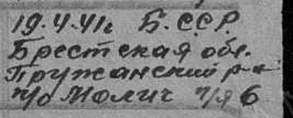 19.4.41г. Б.ССР
Брестская обл.
Пружанский р-н
п/о Молич п/я 6